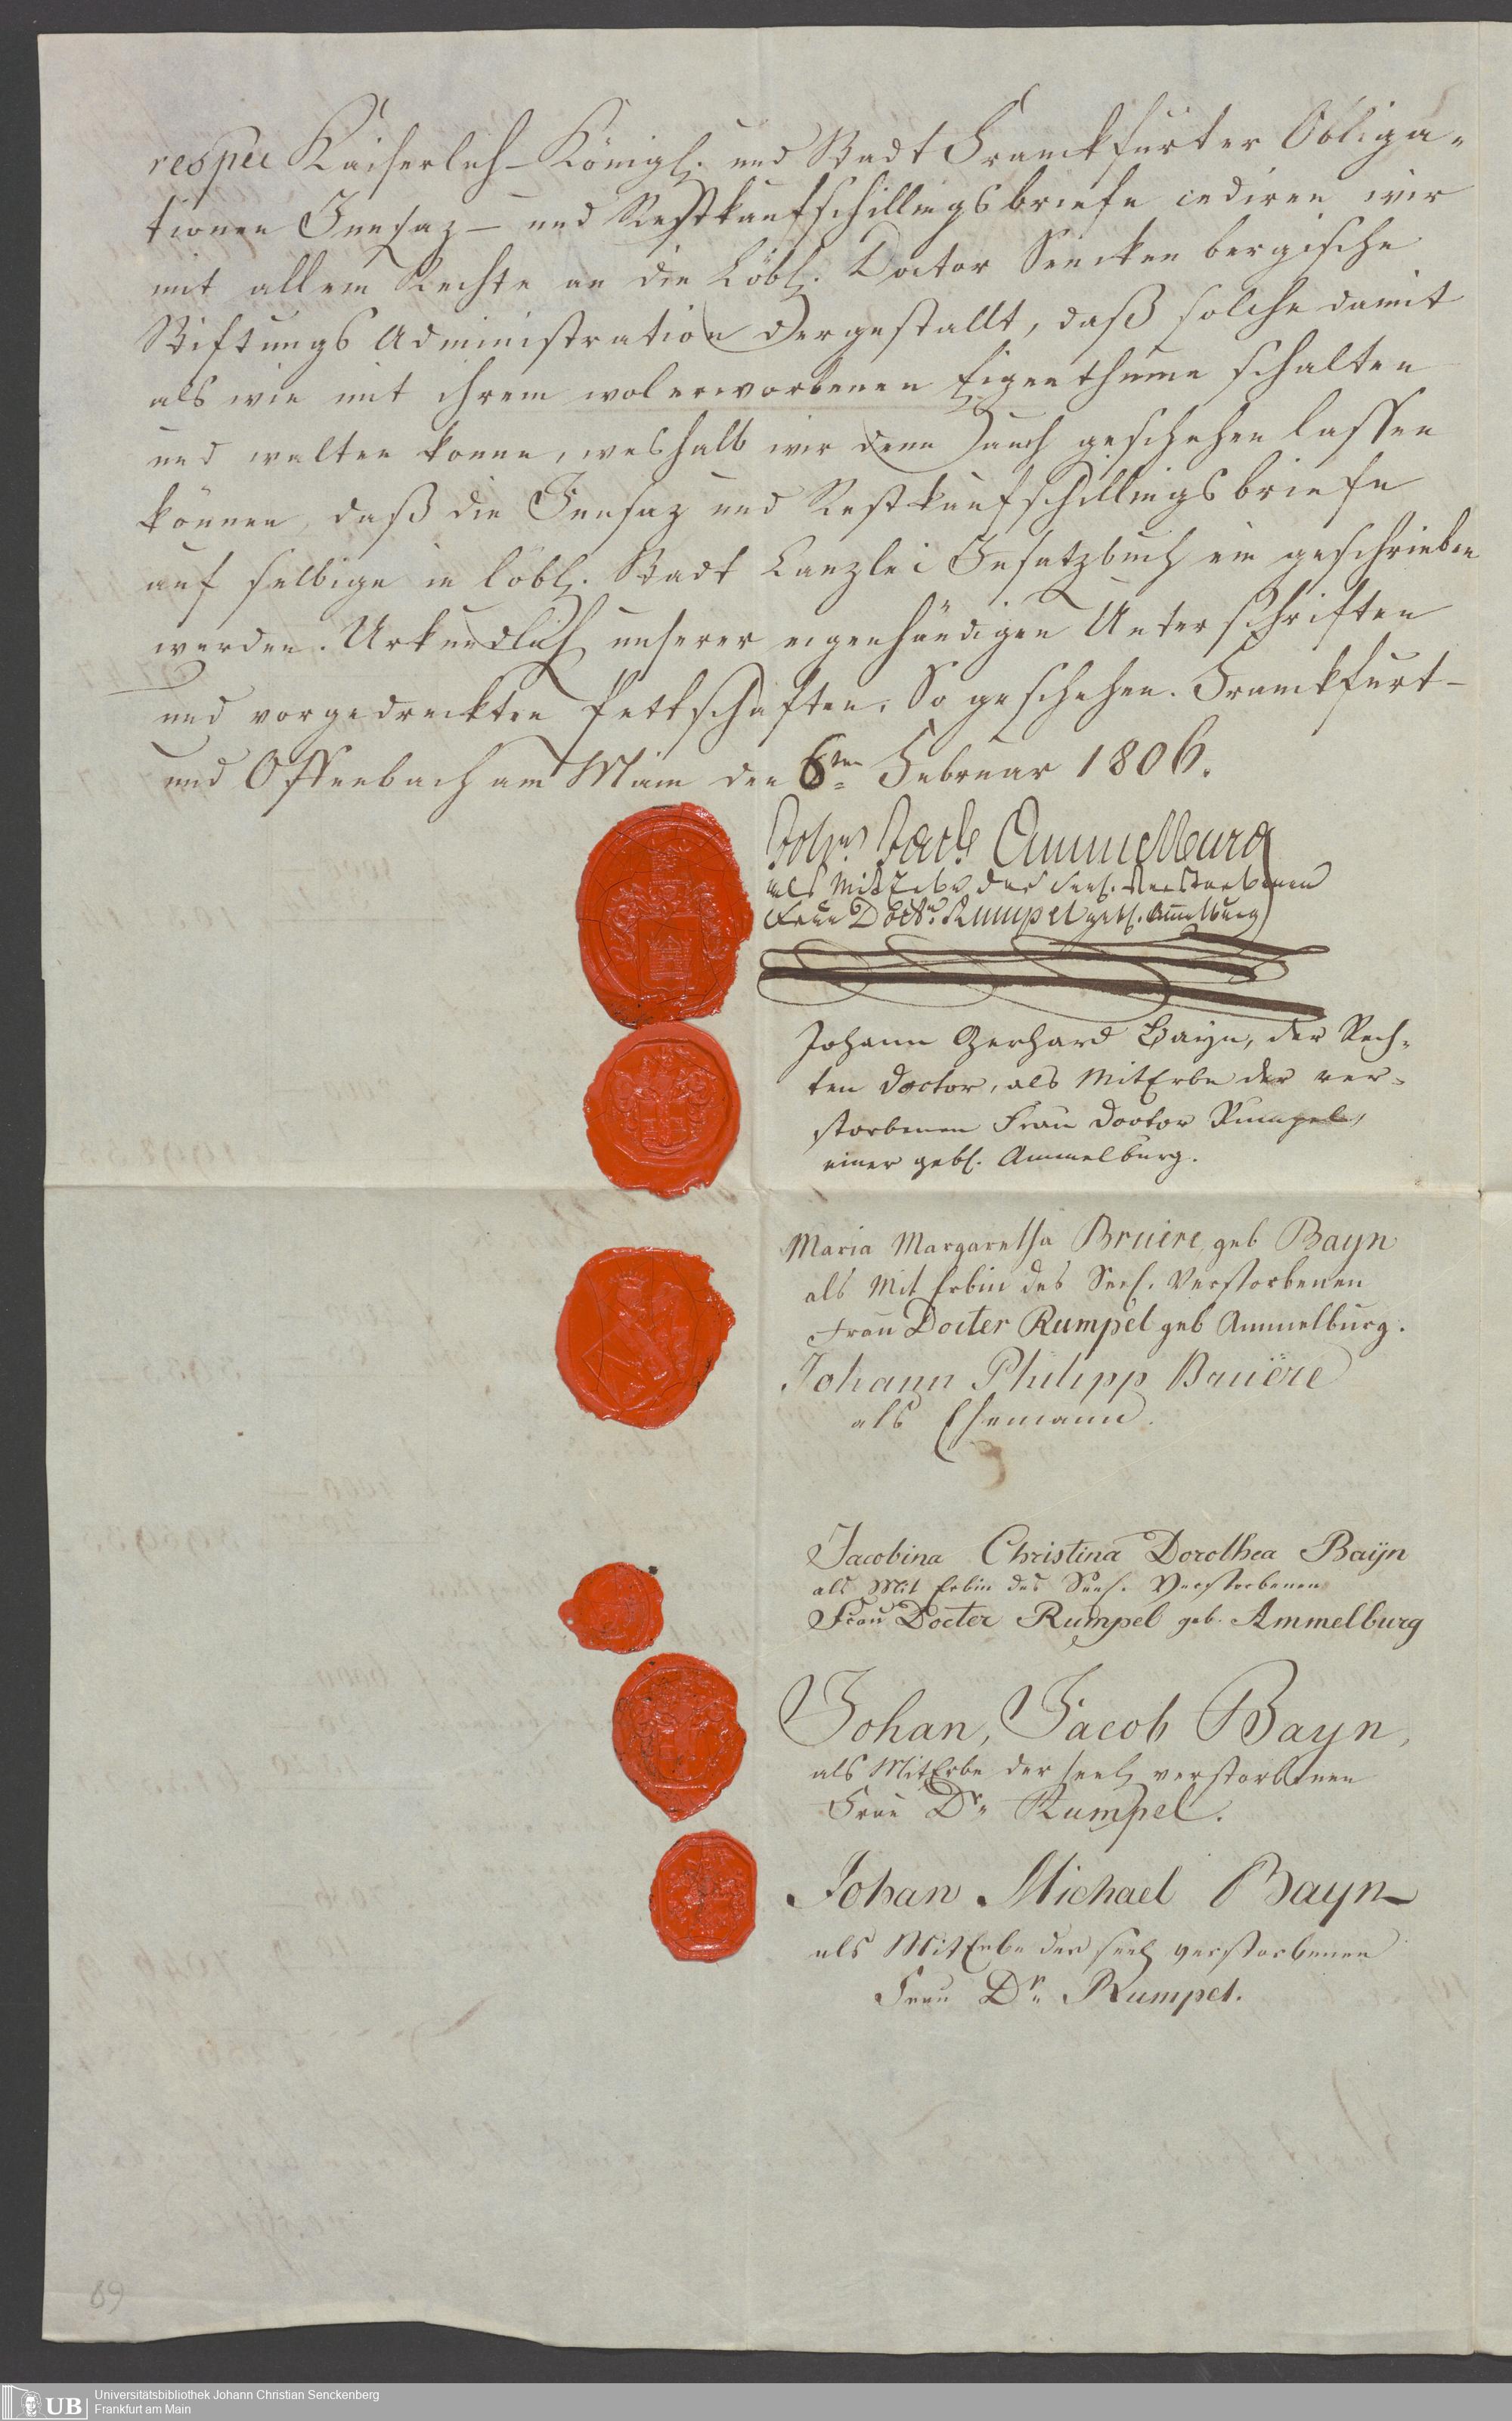 respec Kaiserlch-Königl. und Stadt Franckfurter Obliga-
tionen Innsaz- und Restkaufschillingsbriefe cediren wir
mit allem Rechte an die Löbl. Doctor Senckenbergische
Stiftungs Administration dergestallt, daß solche damit
als wie mit ihrem wolerworbenen Eigenthume schalten
und walten könne, weshalb wir denn auch geschehen lassen
können, daß die Innsaz und Restkaufschillingsbriefe
auf selbige in löbl. Stadt Canzlei Insatzbuch ein geschrieben
werden. Urkundlich unserer eigenhändigen Unterschriften
und vorgedruckten Pettschaften. So geschehen. Franckfurt-
und Offenbach am Main den 6ten Februar 1806.
Johs. Jacb Ammelburg
als MitErbe der seel. verstorbenen
Frau Doctr. Rumpel gebl. Ammelburg
Johann Gerhard Bayn, der Rech-
ten Doctor, als MitErbe der ver-
storbenen Frau Doctor Rumpel,
einer gebl. Ammelburg.
Maria Margaretha Bruère, geb Bayn
als Mit Erbin des Seel. Verstorbenen
Frau Docter Rumpel geb Ammelburg.
Johann Philipp Bruère
als Ehemann.
Jacobina Christina Dorothea Baÿn
als Mit Erbin des Seel. Verstorbenen
Frau Docter Rumpel geb. Ammelburg
Johan, Jacob Bayn,
als MitErbe der seel verstorbenen
Frau Dr. Rumpel.
Johan Michael Bayn
als MitErbe der seel verstorbenen
Frau Dr. Rumpel.
89
UB
Universitätsbibliothek Johann Christian Senckenberg
Frankfurt am Main